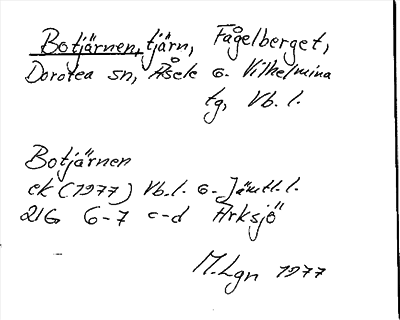 Botjärnen, tjärn, Fågelberget,
Dorotea sn, Åsele o. Vilhelmina
tg, Vb. l.
Botjärnen
ek (1977) Vb.l. o. Jämtl.l.
21G 6-7 c-d Arksjö
M.Lgn 1977